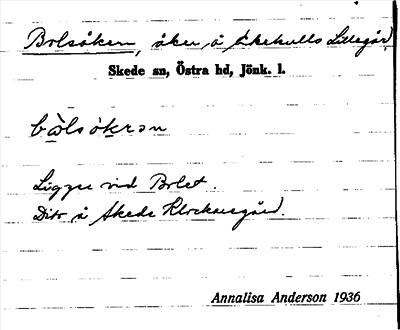 Bolsåkern, åker å Åkekulls Lillegård
Skede sn, Östra hd, Jönk. l.
bòlsòkrən
Ligger vid Bolet.
Dito å Skede Klockaregård.
Annalisa Anderson 1936